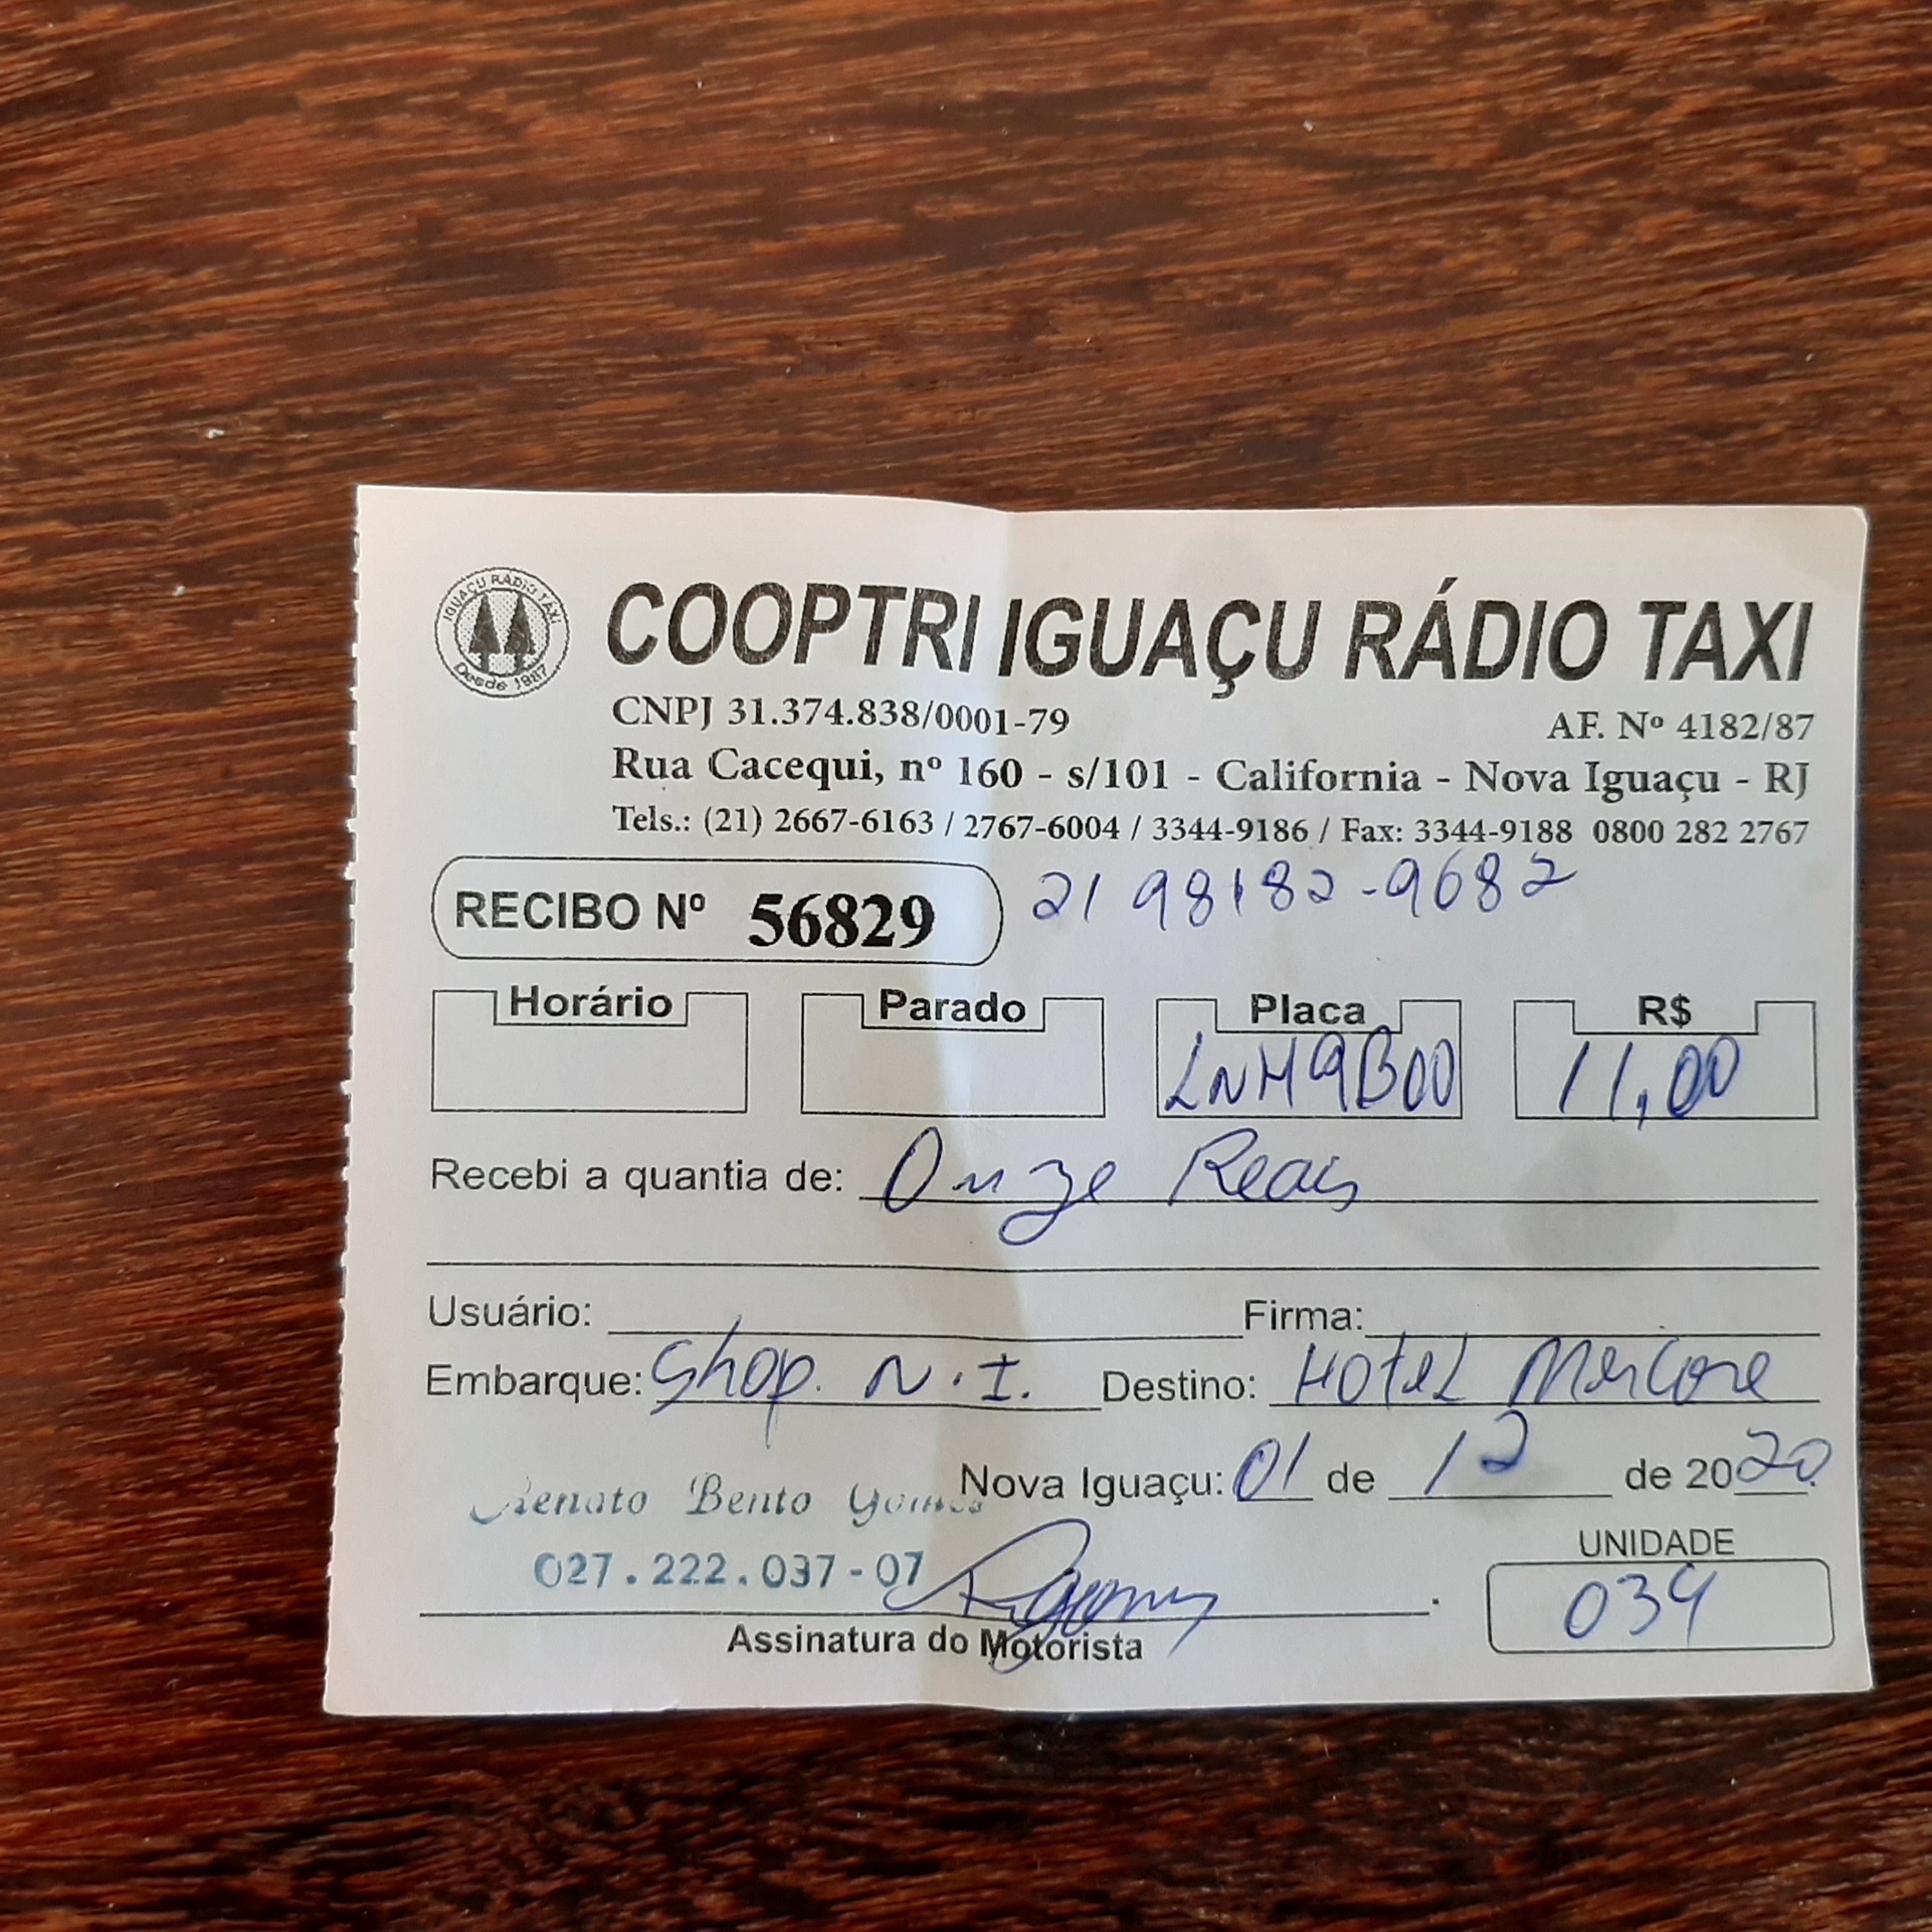 IGUAÇU RÁDIO TAXI
Desde 1987
COOPTRI IGUAÇU RÁDIO TAXI
CNPJ 31.374.838/0001-79 AF. Nº 4182/87
Rua Cacequi, nº 160 - s/101 - California - Nova Iguaçu - RJ
Tels.: (21) 2667-6163 / 2767-6004 / 3344-9186 / Fax: 3344-9188 0800 282 2767
RECIBO Nº 56829 21 98182-9682
Horário Parado Placa R$
LNH9B00 11,00
Recebi a quantia de: Onze Reais
Usuário: Firma:
Embarque: Shop. N.I. Destino: Hotel Mercure
Nova Iguaçu: 01 de 12 de 2020
Renato Bento Gomes
027.222.037-07
UNIDADE
034
Assinatura do Motorista